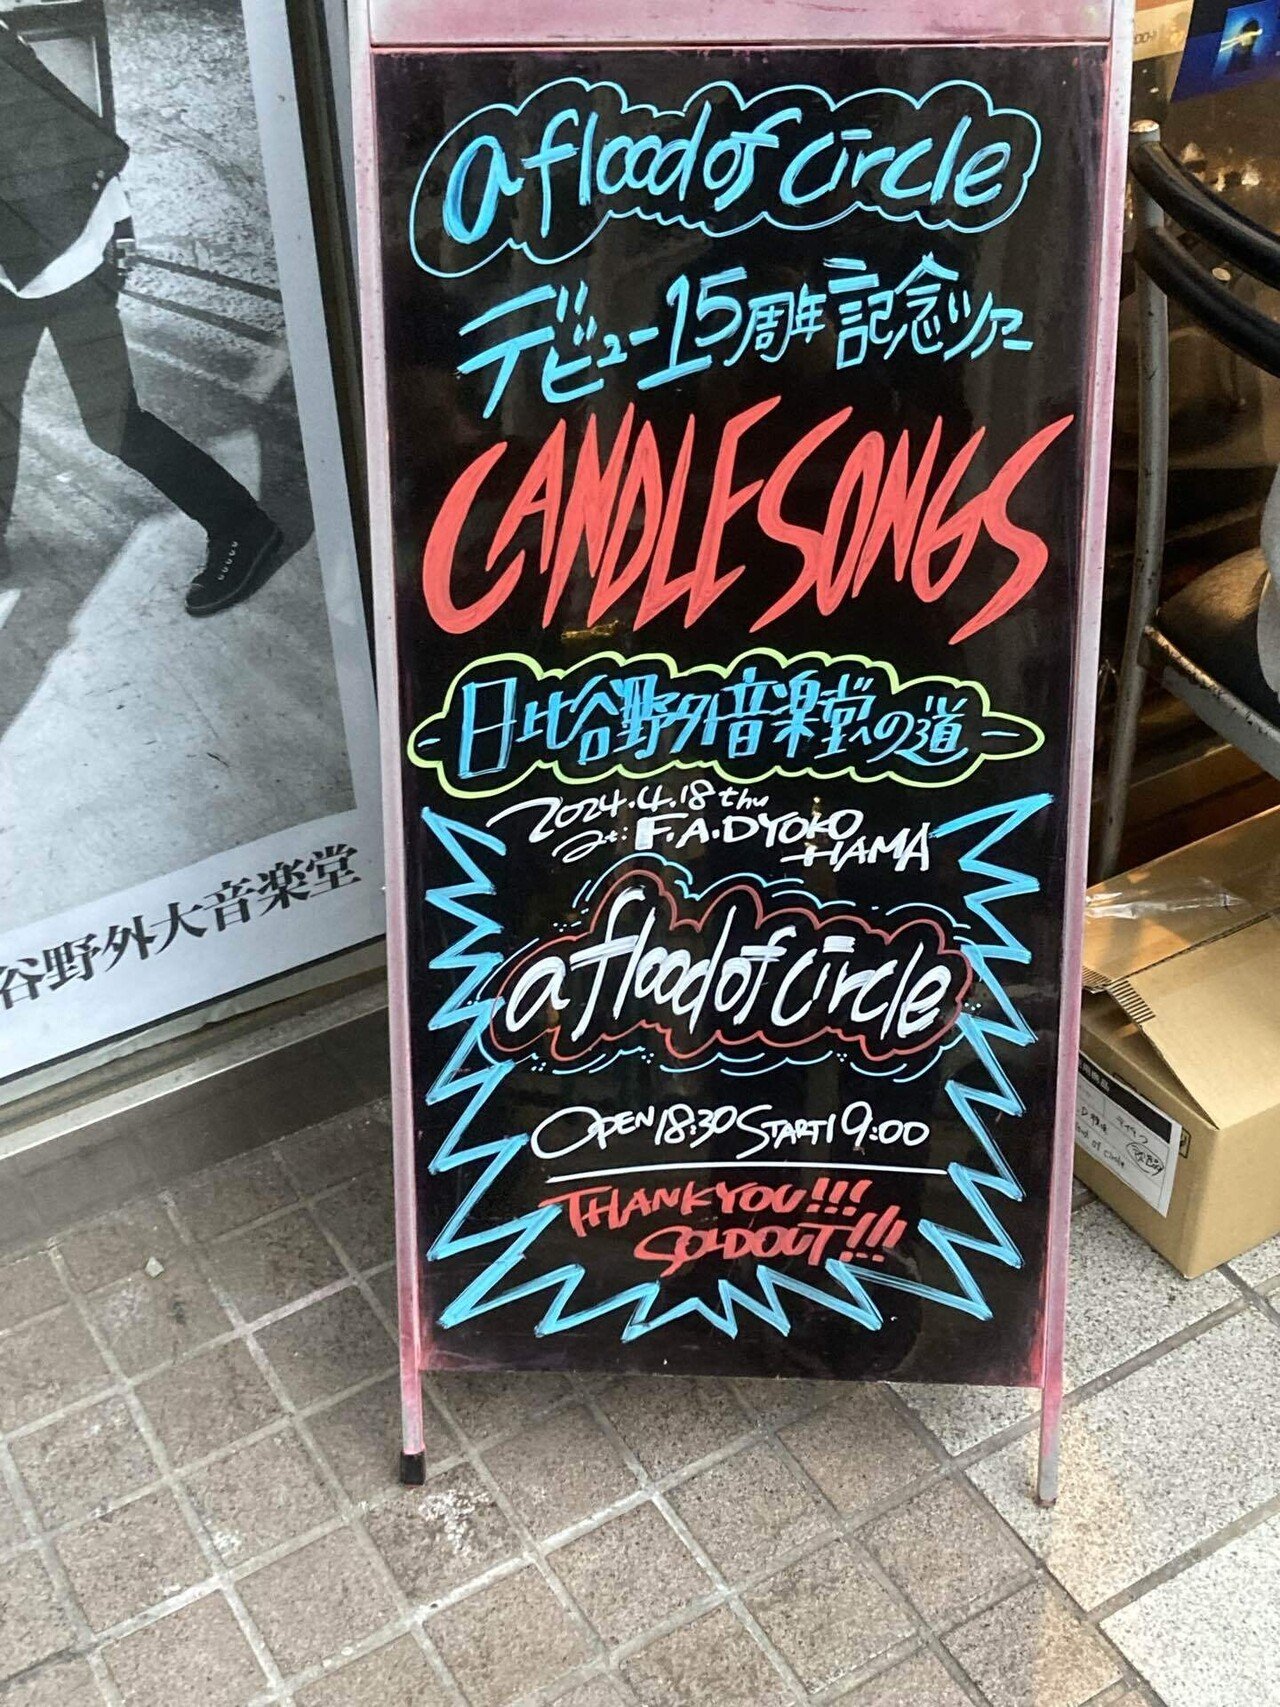 a flood of circle
デビュー15周年記念ツアー
CANDLE SONGS
-日比谷野外音楽堂への道-
2024.4.18 thu
at: F.A.D YOKO
HAMA
a flood of circle
OPEN 18:30 START 19:00
THANK YOU!!!
SOLDOUT!!!
谷野外大音楽堂